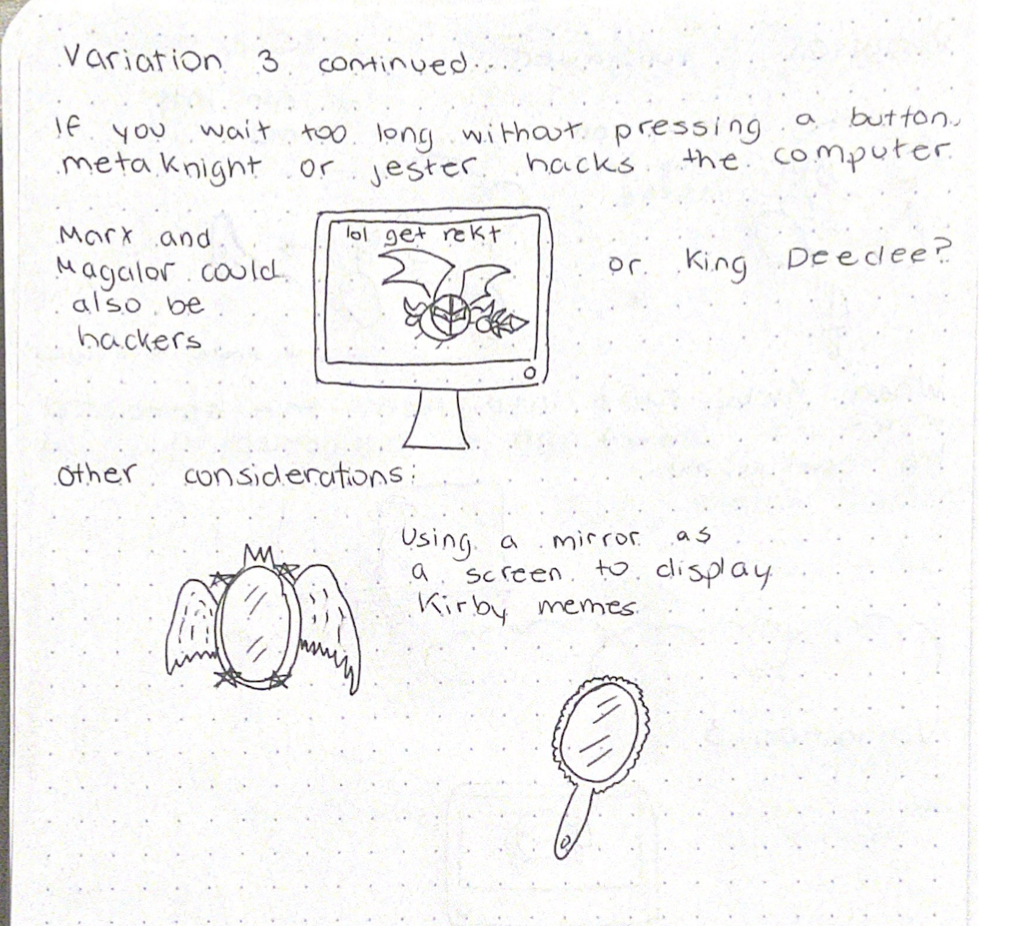 Variation 3 continued...
If you wait too long without pressing a button,
meta Knight or jester hacks the computer
Marx and
Magalor could
also be
hackers
lol get rekt
or King Deedee?
other considerations:
Using a mirror as
a screen to display
Kirby memes